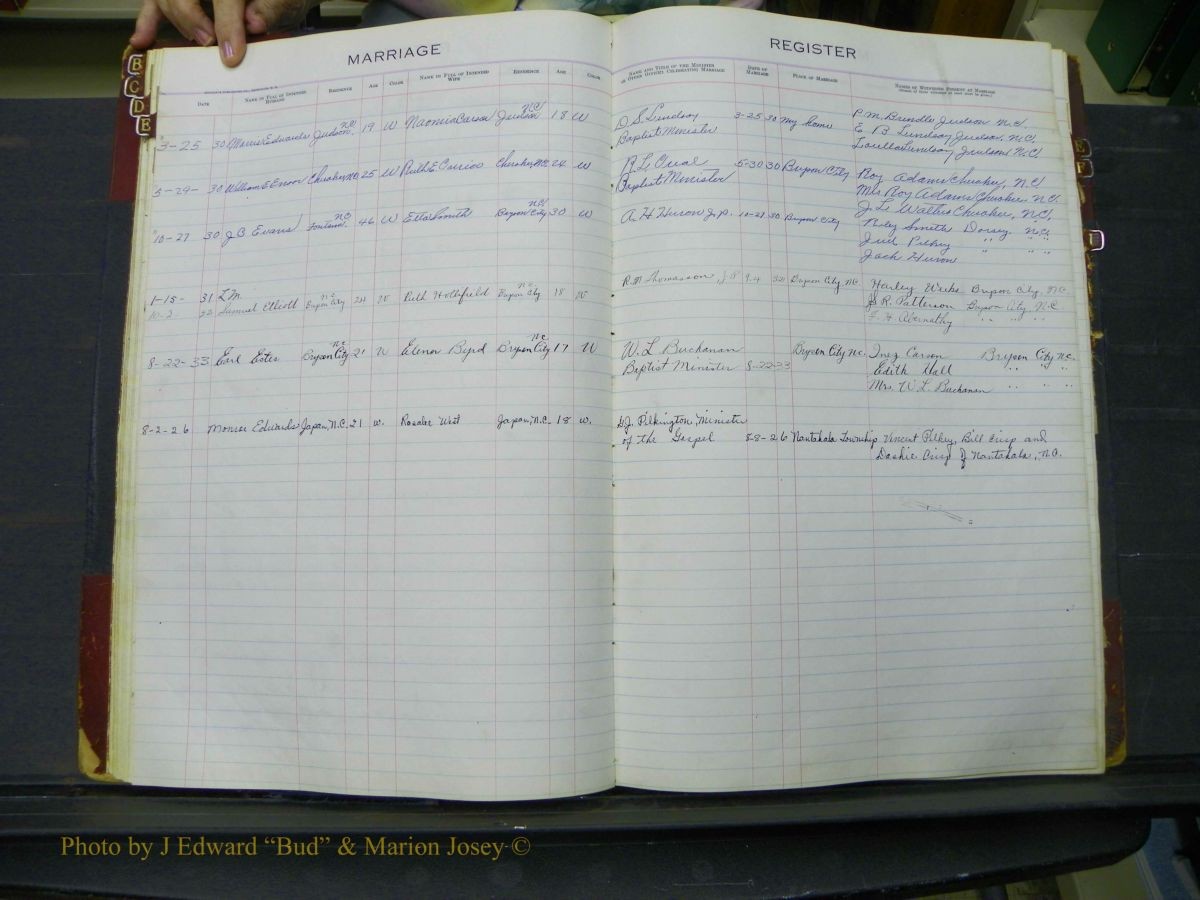 MARRIAGE
REGISTER
DATE NAME IN FULL OF INTENDED HUSBAND RESIDENCE AGE COLOR NAME IN FULL OF INTENDED WIFE RESIDENCE AGE COLOR
NAME AND TITLE OF THE MINISTER OR OTHER OFFICER CELEBRATING MARRIAGE DATE OF MARRIAGE PLACE OF MARRIAGE NAMES OF WITNESSES PRESENT AT MARRIAGE
3-25 30 Edwards Judson N.C. 19 W Naomia Carson Judson N.C. 18 W
D S Lindsay 3-25 30 My home P. M. Brindle Judson N.C.
Baptist Minister E. B. Lindsay Judson, N.C.
Lindsay Judson N.C.
5-29- 30 William E Cherokee, N.C. 25 W Ruth E. Cherokee, N.C. 24 W
R L 5-30 30 Bryson City Roy Adams Cherokee, N.C.
Baptist Minister Mrs Roy Adams Cherokee, N.C.
J. L. Walker Cherokee, N.C.
10-27 30 J B Evans Fontana N.C. 46 W Etta Smith Bryson City N.C. 30 W
A. H. J.P. 10-27 30 Bryson City Smith Dorsey N.C.
Pilkey " " "
Jack
1-15- 31 L. M.
10-2 Samuel Elliott Bryson City N.C. 24 W Beth Hothfield Bryson City N.C. 18 W
R. M. Thomasson, J P 9-4 Bryson City N.C. Harley Bryson City, N.C.
R. Patterson Bryson City N.C.
Abernathy " " "
8-22-33 Earl Estes Bryson City N.C. 21 W Elenor Byrd Bryson City N.C. 17 W
W. L. Buchanan Bryson City N.C. Inez Carson Bryson City N.C.
Baptist Minister 8-22-33 Edith Hall " " "
Mrs. W. L. Buchanan " " "
8-2-26 Monroe Edwards Japan, N.C. 21 w. Rosalee West Japan, N.C. 18 w.
D.J. Pilkington, Minister
of the Gospel 8-8-26 Nantahala Township Vincent Pilkey, Bill Crisp and
Dashie Crisp of Nantahala, N.C.
B
C
D
E
E
F
J
Photo by J Edward “Bud” & Marion Josey ©